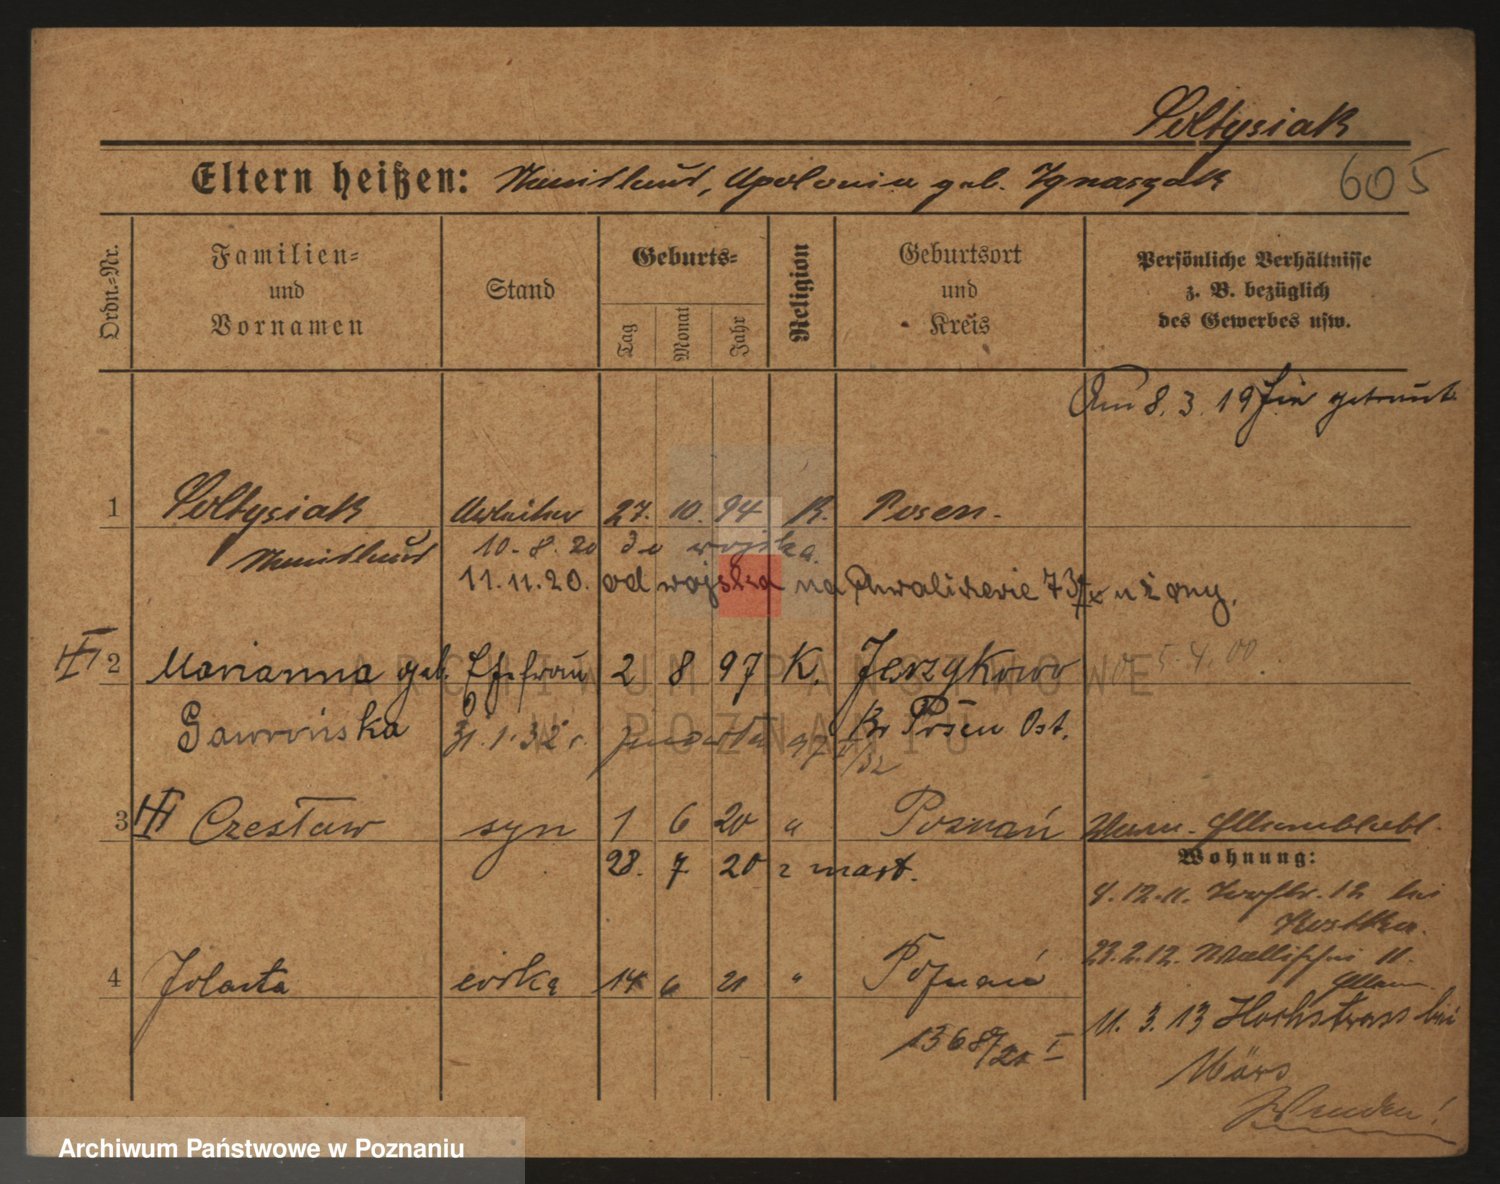 Soltysiak
Eltern heißen: Stanislaus, Apolonia geb. Ignaszak
605
Ordn.-Nr.
Familien-
und
Vornamen
Stand
Geburts-
Tag
Monat
Jahr
Religion
Geburtsort
und
Kreis
Persönliche Verhältnisse
z. B. bezüglich
des Gewerbes usw.
Am 8. 3. 19 hier getraut
1 Soltysiak Arbeiter 27. 10. 94 K. Posen.
Stanislaus 10. 8. 20 do wojska.
11.11.20. od wojska na żony.
2 Marianna geb. Ehefrau 2 8 97 K. Jerzykowo
5. 4. 00.
Gaworińska 31. 1. 32 r. Kr Posen Ost.
3 Czesław syn 1 6 20 " Poznań
28. 7 20 zmarł.
Wohnung:
4. 12. 11. 12 bei
Kostka.
4 Jolanta córka 14 6 21 " Poznań
23. 2. 12. Wallischei 11.
11. 3. 13 Hochstrass bei
1368/21 I
Wenden!
ARCHIWUM PAŃSTWOWE
W POZNANIU
Archiwum Państwowe w Poznaniu